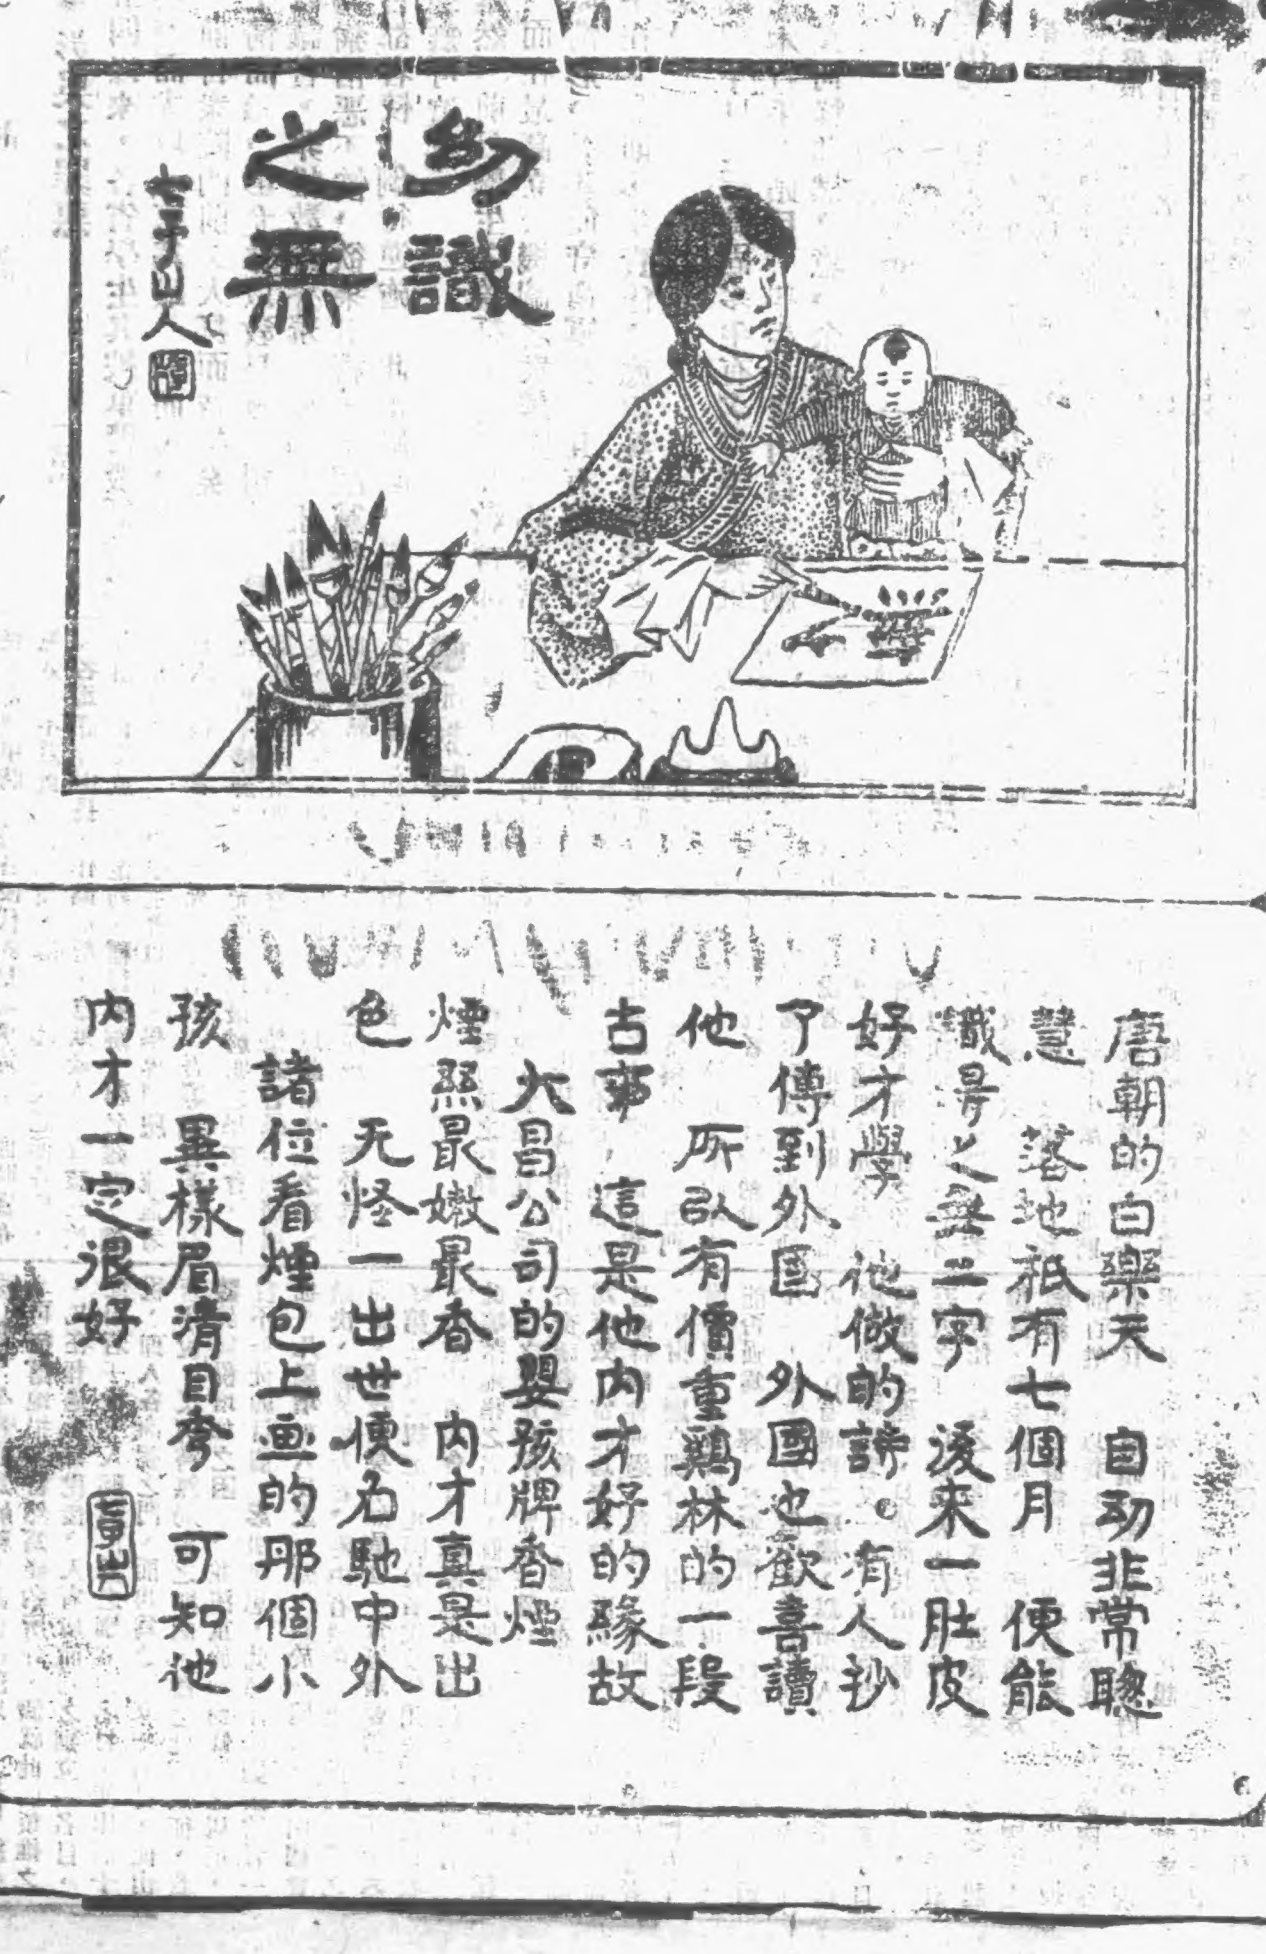 幼識
之無
唐朝的白樂天　自幼非常聰
慧　落地祇有七個月　便能
識得之無二字　後來一肚皮
好才學　他做的詩。有人抄
了傳到外国　外國也歡喜讀
他　所以有價重鷄林的一段
古事　這是他内才好的緣故
大昌公司的嬰孩牌香煙
煙絲最嫩最香　内才真是出
色　无怪一出世便名馳中外
諸位看煙包上画的那個小
孩　異樣眉清目秀　可知他
内才一定很好